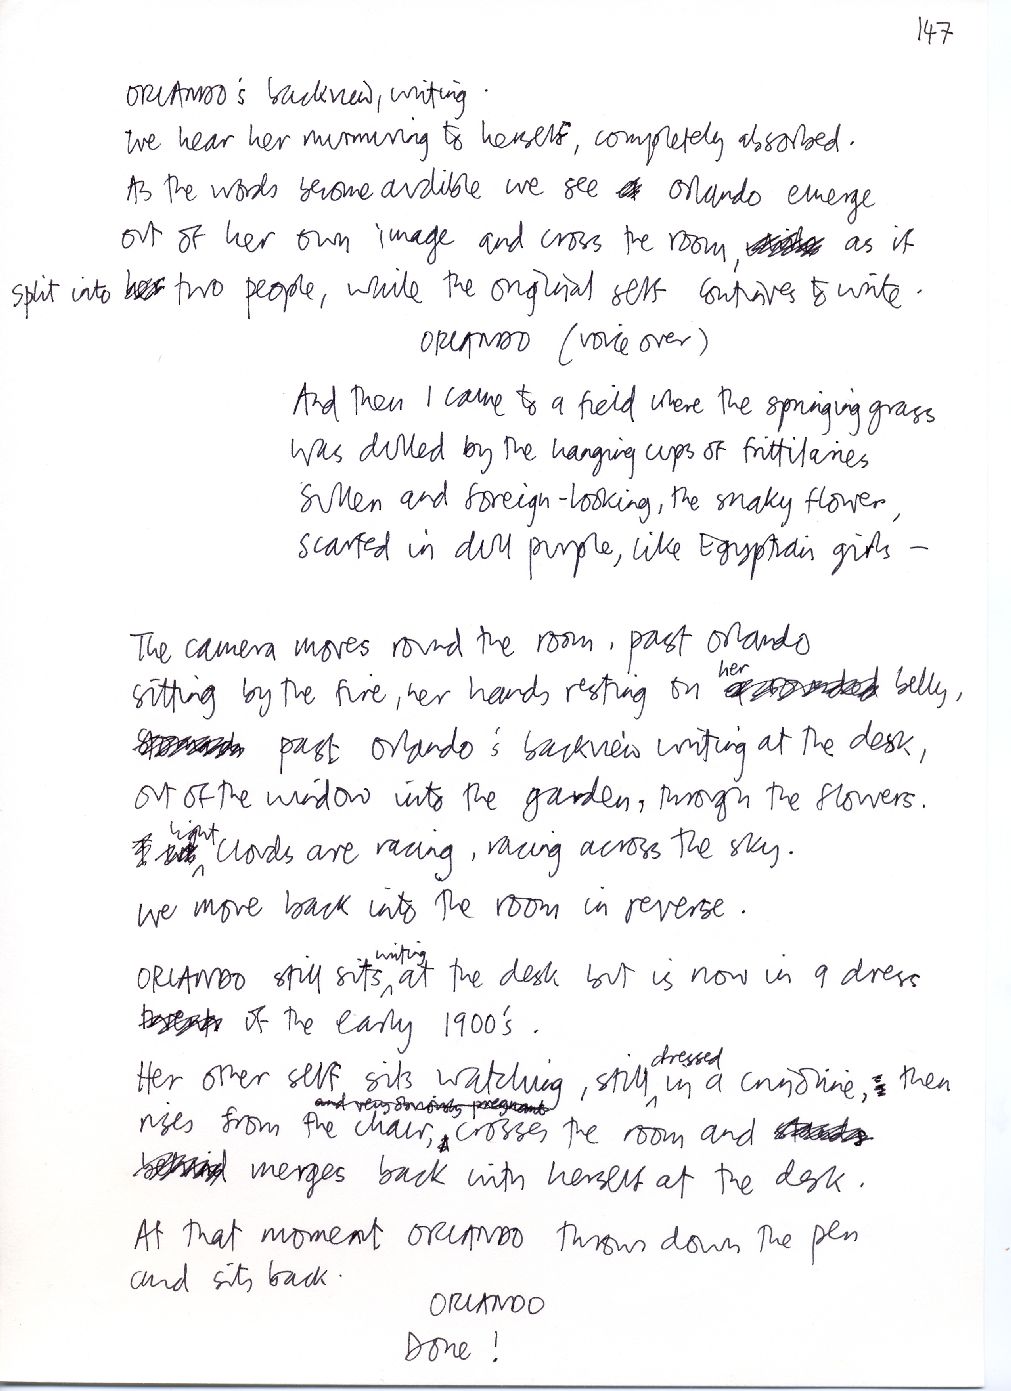 147
ORLANDO's backview, writing.
We hear her murmuring to herself, completely absorbed.
As the words become audible we see Orlando emerge
out of her own image and cross the room, as if
split into two people, while the original self contrives to write.
ORLANDO (voice over)
And then I came to a field where the springing grass
was dulled by the hanging cups of frittilaries
Sullen and foreign-looking, the snaky flower,
scarfed in dull purple, like Egyptian girls —
The camera moves round the room, past Orlando
sitting by the fire, her hands resting on her belly,
past Orlando's backview writing at the desk,
out of the window into the garden, through the flowers.
light clouds are racing, racing across the sky.
We move back into the room in reverse.
ORLANDO still sits writing at the desk but is now in a dress
of the early 1900's.
Her other self sits watching, still dressed in a crinoline, then
and very obviously pregnant
rises from the chair, crosses the room and
behind merges back with herself at the desk.
At that moment ORLANDO throws down the pen
and sits back.
ORLANDO
Done!